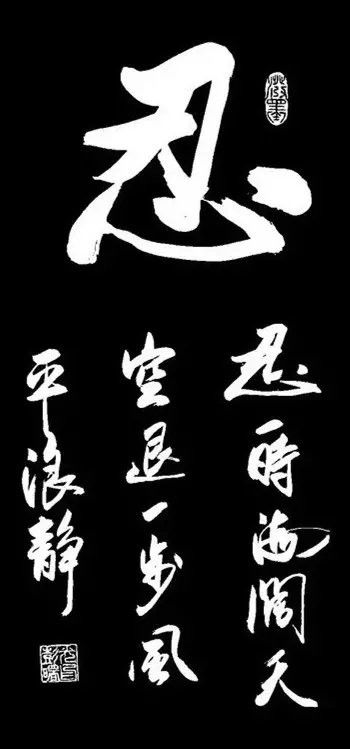 忍
潑墨
忍一時海闊天
空退一步風
平浪靜